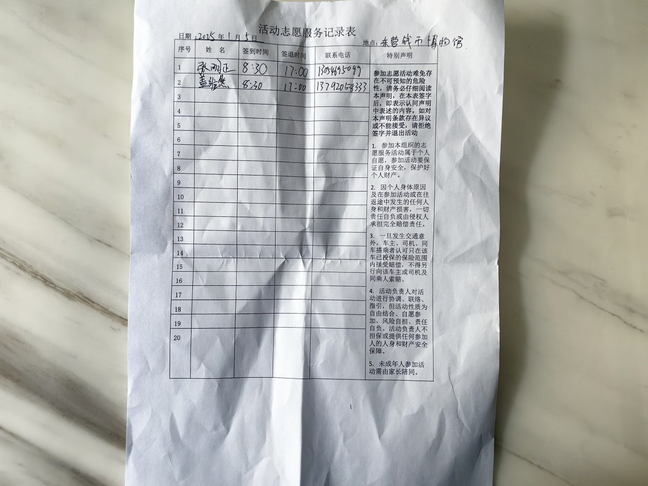 活动志愿服务记录表
日期:2025年1月5日 地点:东营钱币博物馆
序号 姓名 签到时间 签退时间 联系电话 特别声明
1 8:30 17:00
2 8:30 17:00 13792058333
3
4
5
6
7
8
9
10
11
12
13
14
15
16
17
18
19
20
参加志愿活动难免存
在不可预知的危险
性,请务必仔细阅读
本声明,在本表签字
后,即表示认同声明
中表述的内容,如对
本声明条款存在异议
或不能接受,请拒绝
签字并退出活动
1. 参加本组织的志
愿服务活动属于个人
自愿,参加活动要保
证自身安全,保护好
个人财产。
2. 因个人身体原因
及在参加活动或在往
返途中发生的任何人
身和财产损害,一切
责任自负或由侵权人
承担完全赔偿责任。
3. 一旦发生交通意
外,车主、司机、同
车搭乘者认可只在该
车已投保的保险范围
内接受赔偿,不得另
行向该车主或司机及
同乘人索赔。
4. 活动负责人对活
动进行协调、联络、
指引,但活动性质为
自由结合、自愿参
加、风险自担、责任
自负,活动负责人不
担保或提供任何参加
人的人身和财产安全
保障。
5. 未成年人参加活
动需由家长陪同。